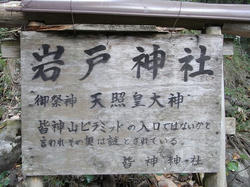 岩戸神社
御祭神 天照皇大神
皆神山ピラミットの入口ではないかと
言われその奥は謎とされている。
皆神神社